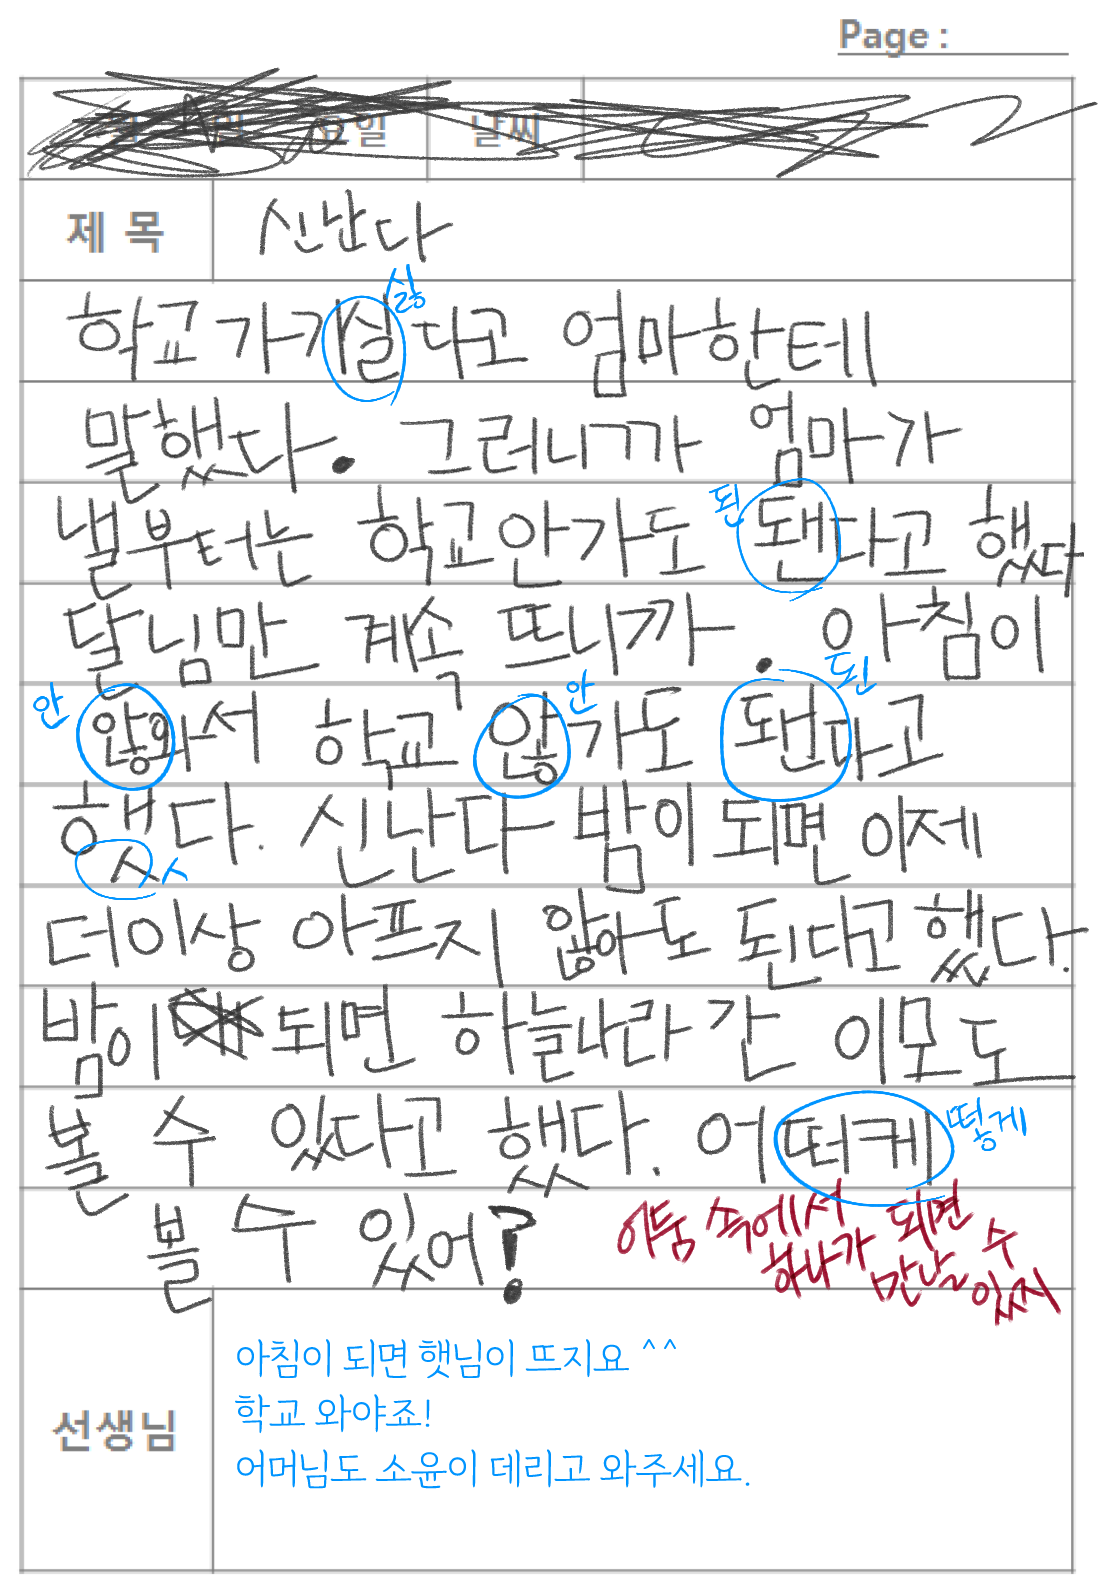 Page :
요일 날씨
제 목 신난다
싫
학교 가기실다고 엄마한테
말했다. 그러니까 엄마가
된
낼부터는 학교안가도 됀다고 했다
달님만 계속 뜨니까. 아침이
안 안 된
않와서 학교 않가도 됀다고
햇다. 신난다 밤이되면 이제
ㅅ
더이상 아프지 않아도 된다고했다.
밤이 되면 하늘나라 간 이모도
볼 수 있다고 했다. 어떠케
떻게
볼 수 있어?
어둠 속에서
하나가 되면
만날 수
있지
선생님
아침이 되면 햇님이 뜨지요 ^^
학교 와야죠!
어머님도 소윤이 데리고 와주세요.